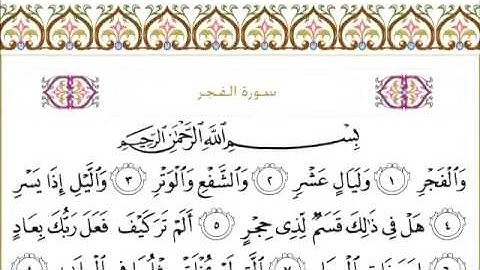 سورة الفجر
بِسْمِ اللَّهِ الرَّحْمَٰنِ الرَّحِيمِ
وَالْفَجْرِ ١ وَلَيَالٍ عَشْرٍ ٢ وَالشَّفْعِ وَالْوَتْرِ ٣ وَاللَّيْلِ إِذَا يَسْرِ
٤ هَلْ فِي ذَٰلِكَ قَسَمٌ لِّذِي حِجْرٍ ٥ أَلَمْ تَرَ كَيْفَ فَعَلَ رَبُّكَ بِعَادٍ